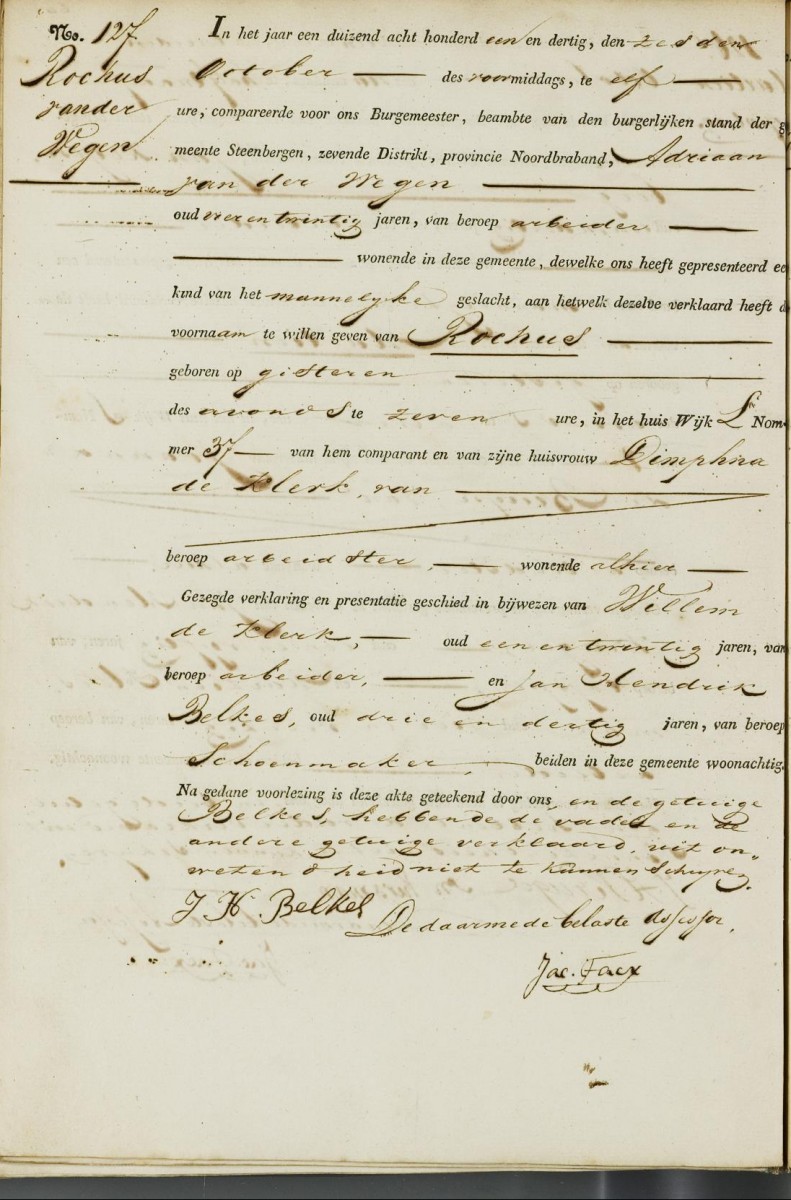 No. 127.
Rochus
van der
Wegen
In het jaar een duizend acht honderd een en dertig, den zesden
October des voormiddags, te elf
ure, compareerde voor ons Burgemeester, beambte van den burgerlijken stand der g
meente Steenbergen, zevende Distrikt, provincie Noordbraband, Adriaan
van der Wegen
oud vier en twintig jaren, van beroep arbeider
wonende in deze gemeente, dewelke ons heeft gepresenteerd ee
kind van het mannelyke geslacht, aan hetwelk dezelve verklaard heeft d
voornaam te willen geven van Rochus
geboren op gisteren
des avonds te zeven ure, in het huis Wijk L Nom-
mer 37 van hem comparant en van zijne huisvrouw Dimphna
de Klerk, van
beroep arbeidster, wonende alhier
Gezegde verklaring en presentatie geschied in bijwezen van Willem
de Klerk, oud een en twintig jaren, van
beroep arbeider, en Jan Hendrik
Belkes, oud drie en dertig jaren, van beroep
Schoenmaker, beiden in deze gemeente woonachtig.
Na gedane voorlezing is deze akte geteekend door ons, en de getuige
Belkes, hebbende de vader en de
andere getuige verklaard, uit on„
wetendheid niet te kunnen schryven.
J. H. Belkes
De daarmede belaste Assessor,
Jac. Faex